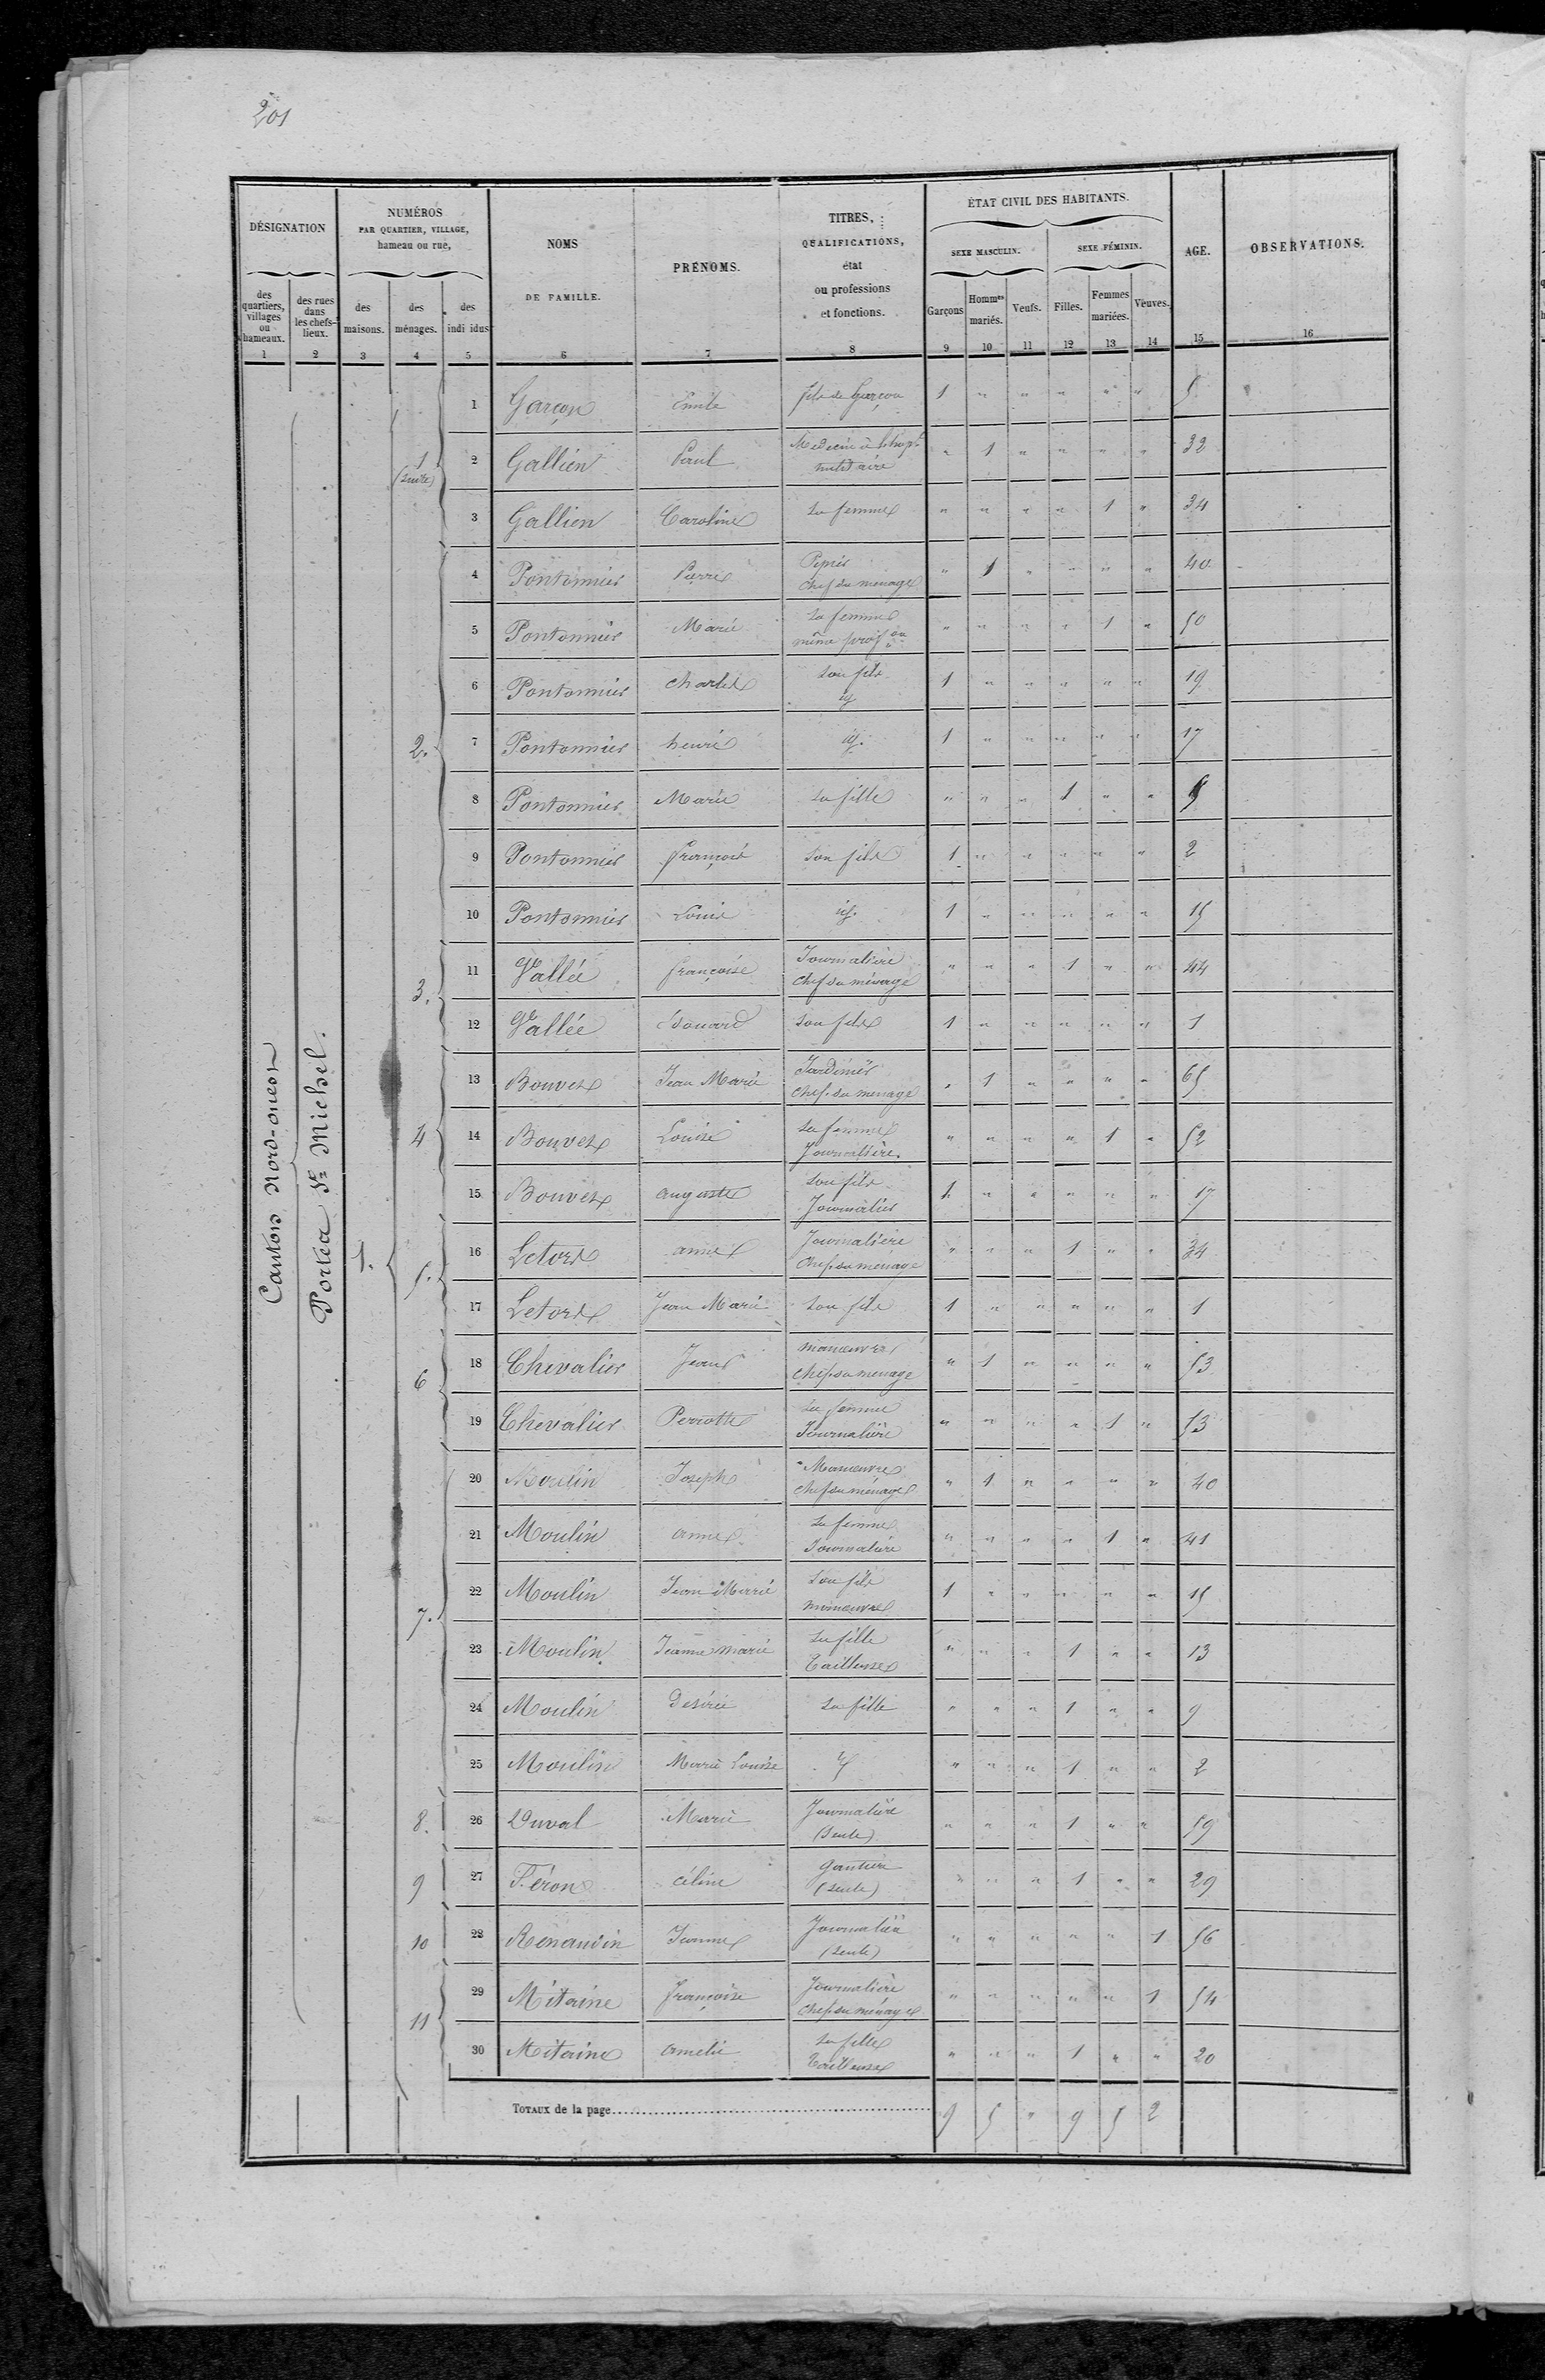 201
DÉSIGNATION
NUMÉROS
PAR QUARTIER, VILLAGE,
hameau ou rue,
NOMS
DE FAMILLE.
PRÉNOMS.
TITRES,
QUALIFICATIONS,
état
ou professions
et fonctions.
ÉTAT CIVIL DES HABITANTS.
SEXE MASCULIN.
SEXE FÉMININ.
AGE.
OBSERVATIONS.
des quartiers, villages ou hameaux.
des rues dans les chefs-lieux.
des maisons.
des ménages.
des indi idus
Garçons
Hommes mariés.
Veufs.
Filles.
Femmes mariées.
Veuves.
1 2 3 4 5 6 7 8 9 10 11 12 13 14 15 16
Canton Nord-ouest
Porte St Michel.
1.
1 Garçon Emile fils de Garçon 1 " " " " " 5
1 (suite) 2 Gallien Paul Medecin à l'hop. militaire " 1 " " " " 32
3 Gallien Caroline sa femme " " " " 1 " 34
4 Pontonnier Pierre chef du menage " 1 " " " " 40
2. 5 Pontonnier Marie sa femme même prof.on " " " " 1 " 50
6 Pontonnier charles son fils id 1 " " " " " 19
7 Pontonnier henri id. 1 " " " " " 17
8 Pontonnier Marie sa fille " " " 1 " "
9 Pontonnier françois son fils 1 " " " " " 2
10 Pontonnier Louis id. 1 " " " " " 15
3. 11 Vallée françoise Journalière chef du ménage " " " 1 " " 44
12 Vallée édouard son fils 1 " " " " " 1
13 Bouvet Jean Marie Jardinier chef du menage " 1 " " " " 65
4 14 Bouvet Louise sa femme Journalière. " " " " 1 " 52
15 Bouvet auguste son fils Journalier 1 " " " " " 17
5. 16 Letort anne Journalière chef du menage " " " 1 " " 34
17 Letort Jean Marie son fils 1 " " " " " 1
6 18 Chevalier Jean manœuvre chef du menage " 1 " " " " 53
19 Chevalier Perrotte sa femme Journalière " " " " 1 " 53
20 Moulin Joseph Manœuvre chef du ménage " 1 " " " " 40
21 Moulin anne sa femme Journalière " " " " 1 " 41
7. 22 Moulin Jean Marie son fils manœuvre 1 " " " " " 15
23 Moulin Jeanne marie sa fille Tailleuse " " " 1 " " 13
24 Moulin Désirée sa fille " " " 1 " " 9
25 Moulin Marie Louise id " " " 1 " " 2
8. 26 Duval Marie Journalière (seule) " " " 1 " " 59
9 27 Féron céline gantière (seule) " " " 1 " " 29
10 28 Renaudin Jeanne Journalière (seule) " " " " " 1 56
11 29 Mitaine françoise Journalière chef du ménage " " " " " 1 54
30 Mitaine amélie sa fille Tailleuse " " " 1 " " 20
TOTAUX de la page 9 5 " 9 5 2